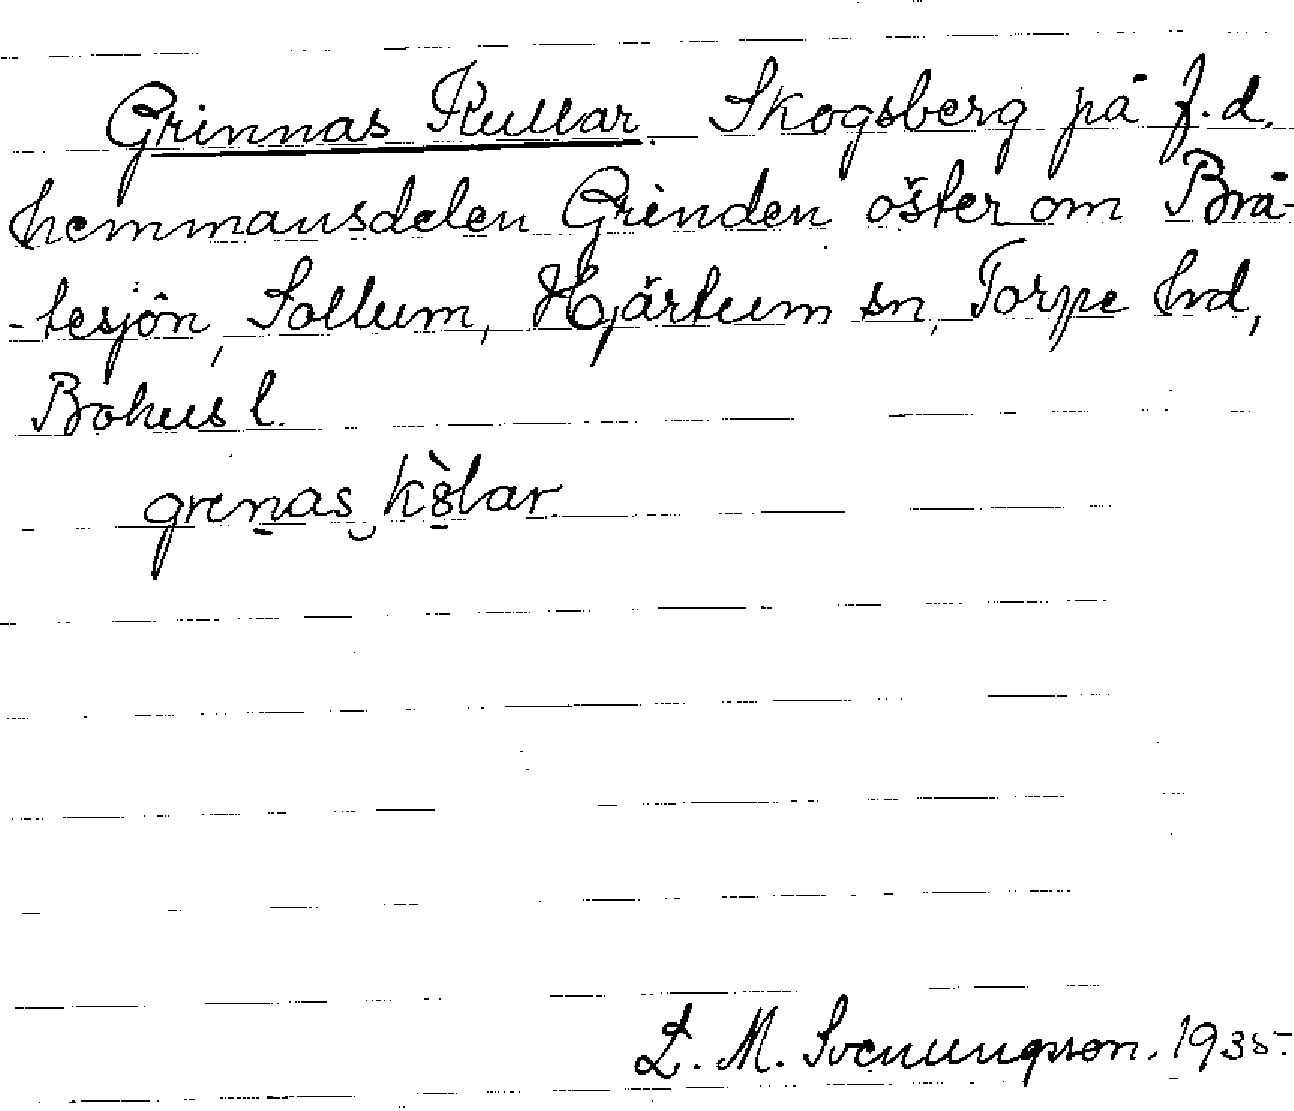 Grinnas Kullar. Skogsberg på f.d.
hemmansdelen Grinden öster om Brä-
-tesjön, Sollum, Hjärtum sn, Torpe hd,
Bohus l.
grenas kölar
L. M. Svenungsson. 1935.